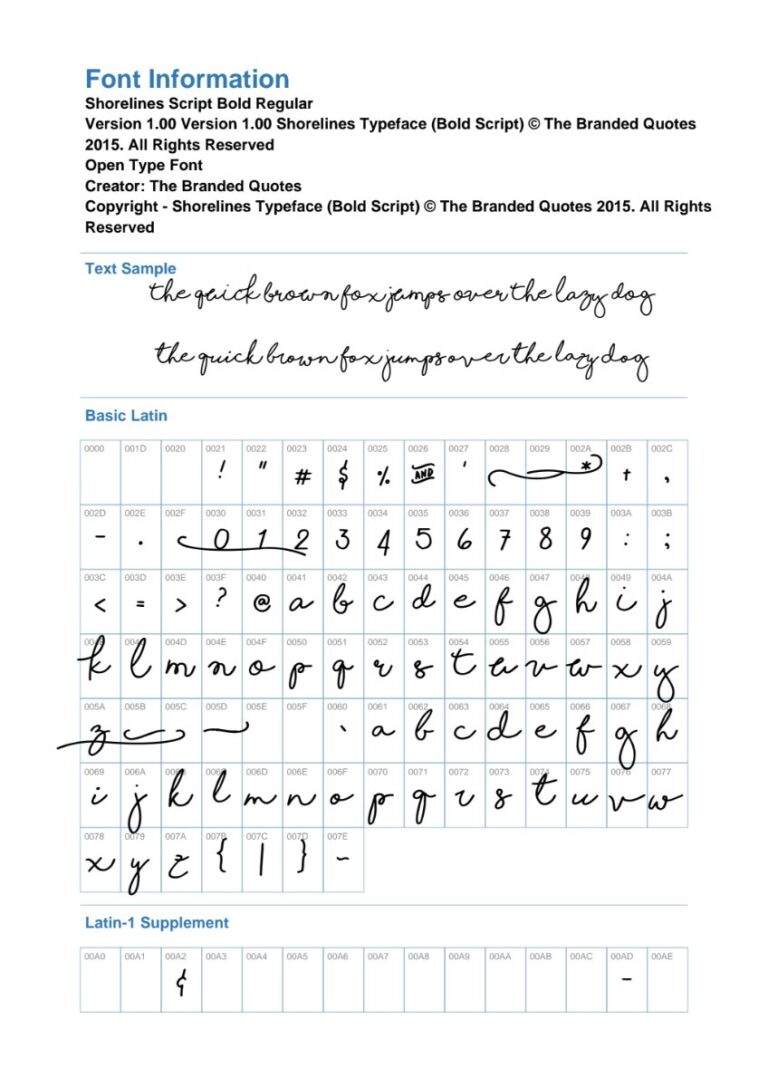 Font Information
Shorelines Script Bold Regular
Version 1.00 Version 1.00 Shorelines Typeface (Bold Script) © The Branded Quotes
2015. All Rights Reserved
Open Type Font
Creator: The Branded Quotes
Copyright - Shorelines Typeface (Bold Script) © The Branded Quotes 2015. All Rights
Reserved
Text Sample
the quick brown fox jumps over the lazy dog
the quick brown fox jumps over the lazy dog
Basic Latin
0000 001D 0020 0021 0022 0023 0024 0025 0026 0027 0028 0029 002A 002B 002C
! " # $ % AND ' * + ,
002D 002E 002F 0030 0031 0032 0033 0034 0035 0036 0037 0038 0039 003A 003B
- . 0 1 2 3 4 5 6 7 8 9 : ;
003C 003D 003E 003F 0040 0041 0042 0043 0044 0045 0046 0047 0048 0049 004A
< = > ? @ a b c d e f g h i j
004D 004E 004F 0050 0051 0052 0053 0054 0055 0056 0057 0058 0059
k l m n o p q r s t u v w x y
005A 005B 005C 005D 005E 005F 0060 0061 0062 0063 0064 0065 0066 0067 0068
z ` a b c d e f g h
0069 006A 006D 006E 006F 0070 0071 0072 0073 0074 0075 0076 0077
i j k l m n o p q r s t u v w
0078 0079 007A 007B 007C 007D 007E
x y z { | } ~
Latin-1 Supplement
00A0 00A1 00A2 00A3 00A4 00A5 00A6 00A7 00A8 00A9 00AA 00AB 00AC 00AD 00AE
¢ -